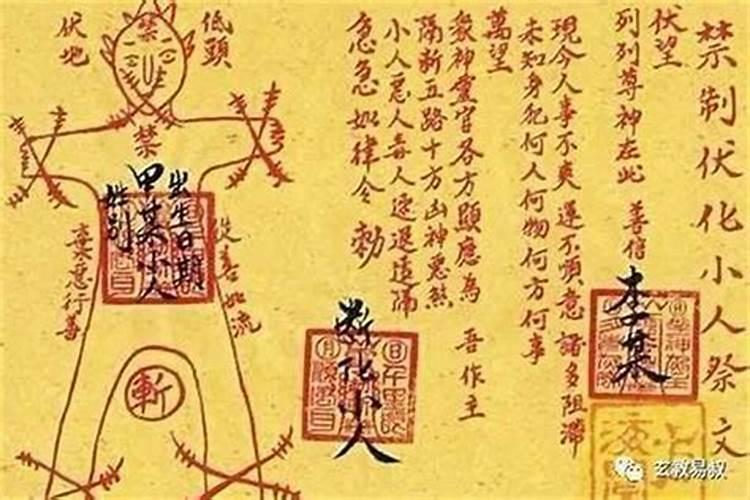 禁制伏化小人祭文
伏望
列列尊神在此 善信
李某
現今人事不爽運不順意諸多阻滯
未知身犯何人何物何方何事
萬望
眾神靈官各方顯應為 吾作主
隔斷五路十方凶神惡煞
小人惡人毒人速退遠隔
急急如律令勅
斷化小人
低頭
伏地
禁
禁
出生日期
甲某小人
性别
從善如流
棄惡行善
斬
玄教易叔